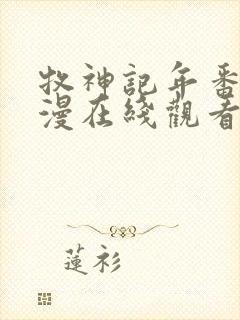 牧神記年番
漫在綫觀看
蓮衫